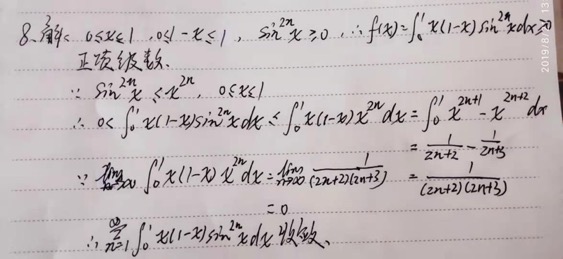 8、解: 0≤x≤1, 0≤1-x≤1, sin^{2n}x≥0, ∴ f(x)=∫₀¹x(1-x)sin^{2n}xdx≥0
正项级数.
∵ sin^{2n}x≤x^{2n}, 0≤x≤1
∴ 0<∫₀¹x(1-x)sin^{2n}xdx≤∫₀¹x(1-x)x^{2n}dx=∫₀¹x^{2n+1}-x^{2n+2}dx
=1/(2n+2)-1/(2n+3)
∵ lim_{n→∞}∫₀¹x(1-x)x^{2n}dx=lim_{n→∞}1/((2n+2)(2n+3)) =1/((2n+2)(2n+3))
=0
∴ ∑_{n=1}^{∞}∫₀¹x(1-x)sin^{2n}xdx收敛.